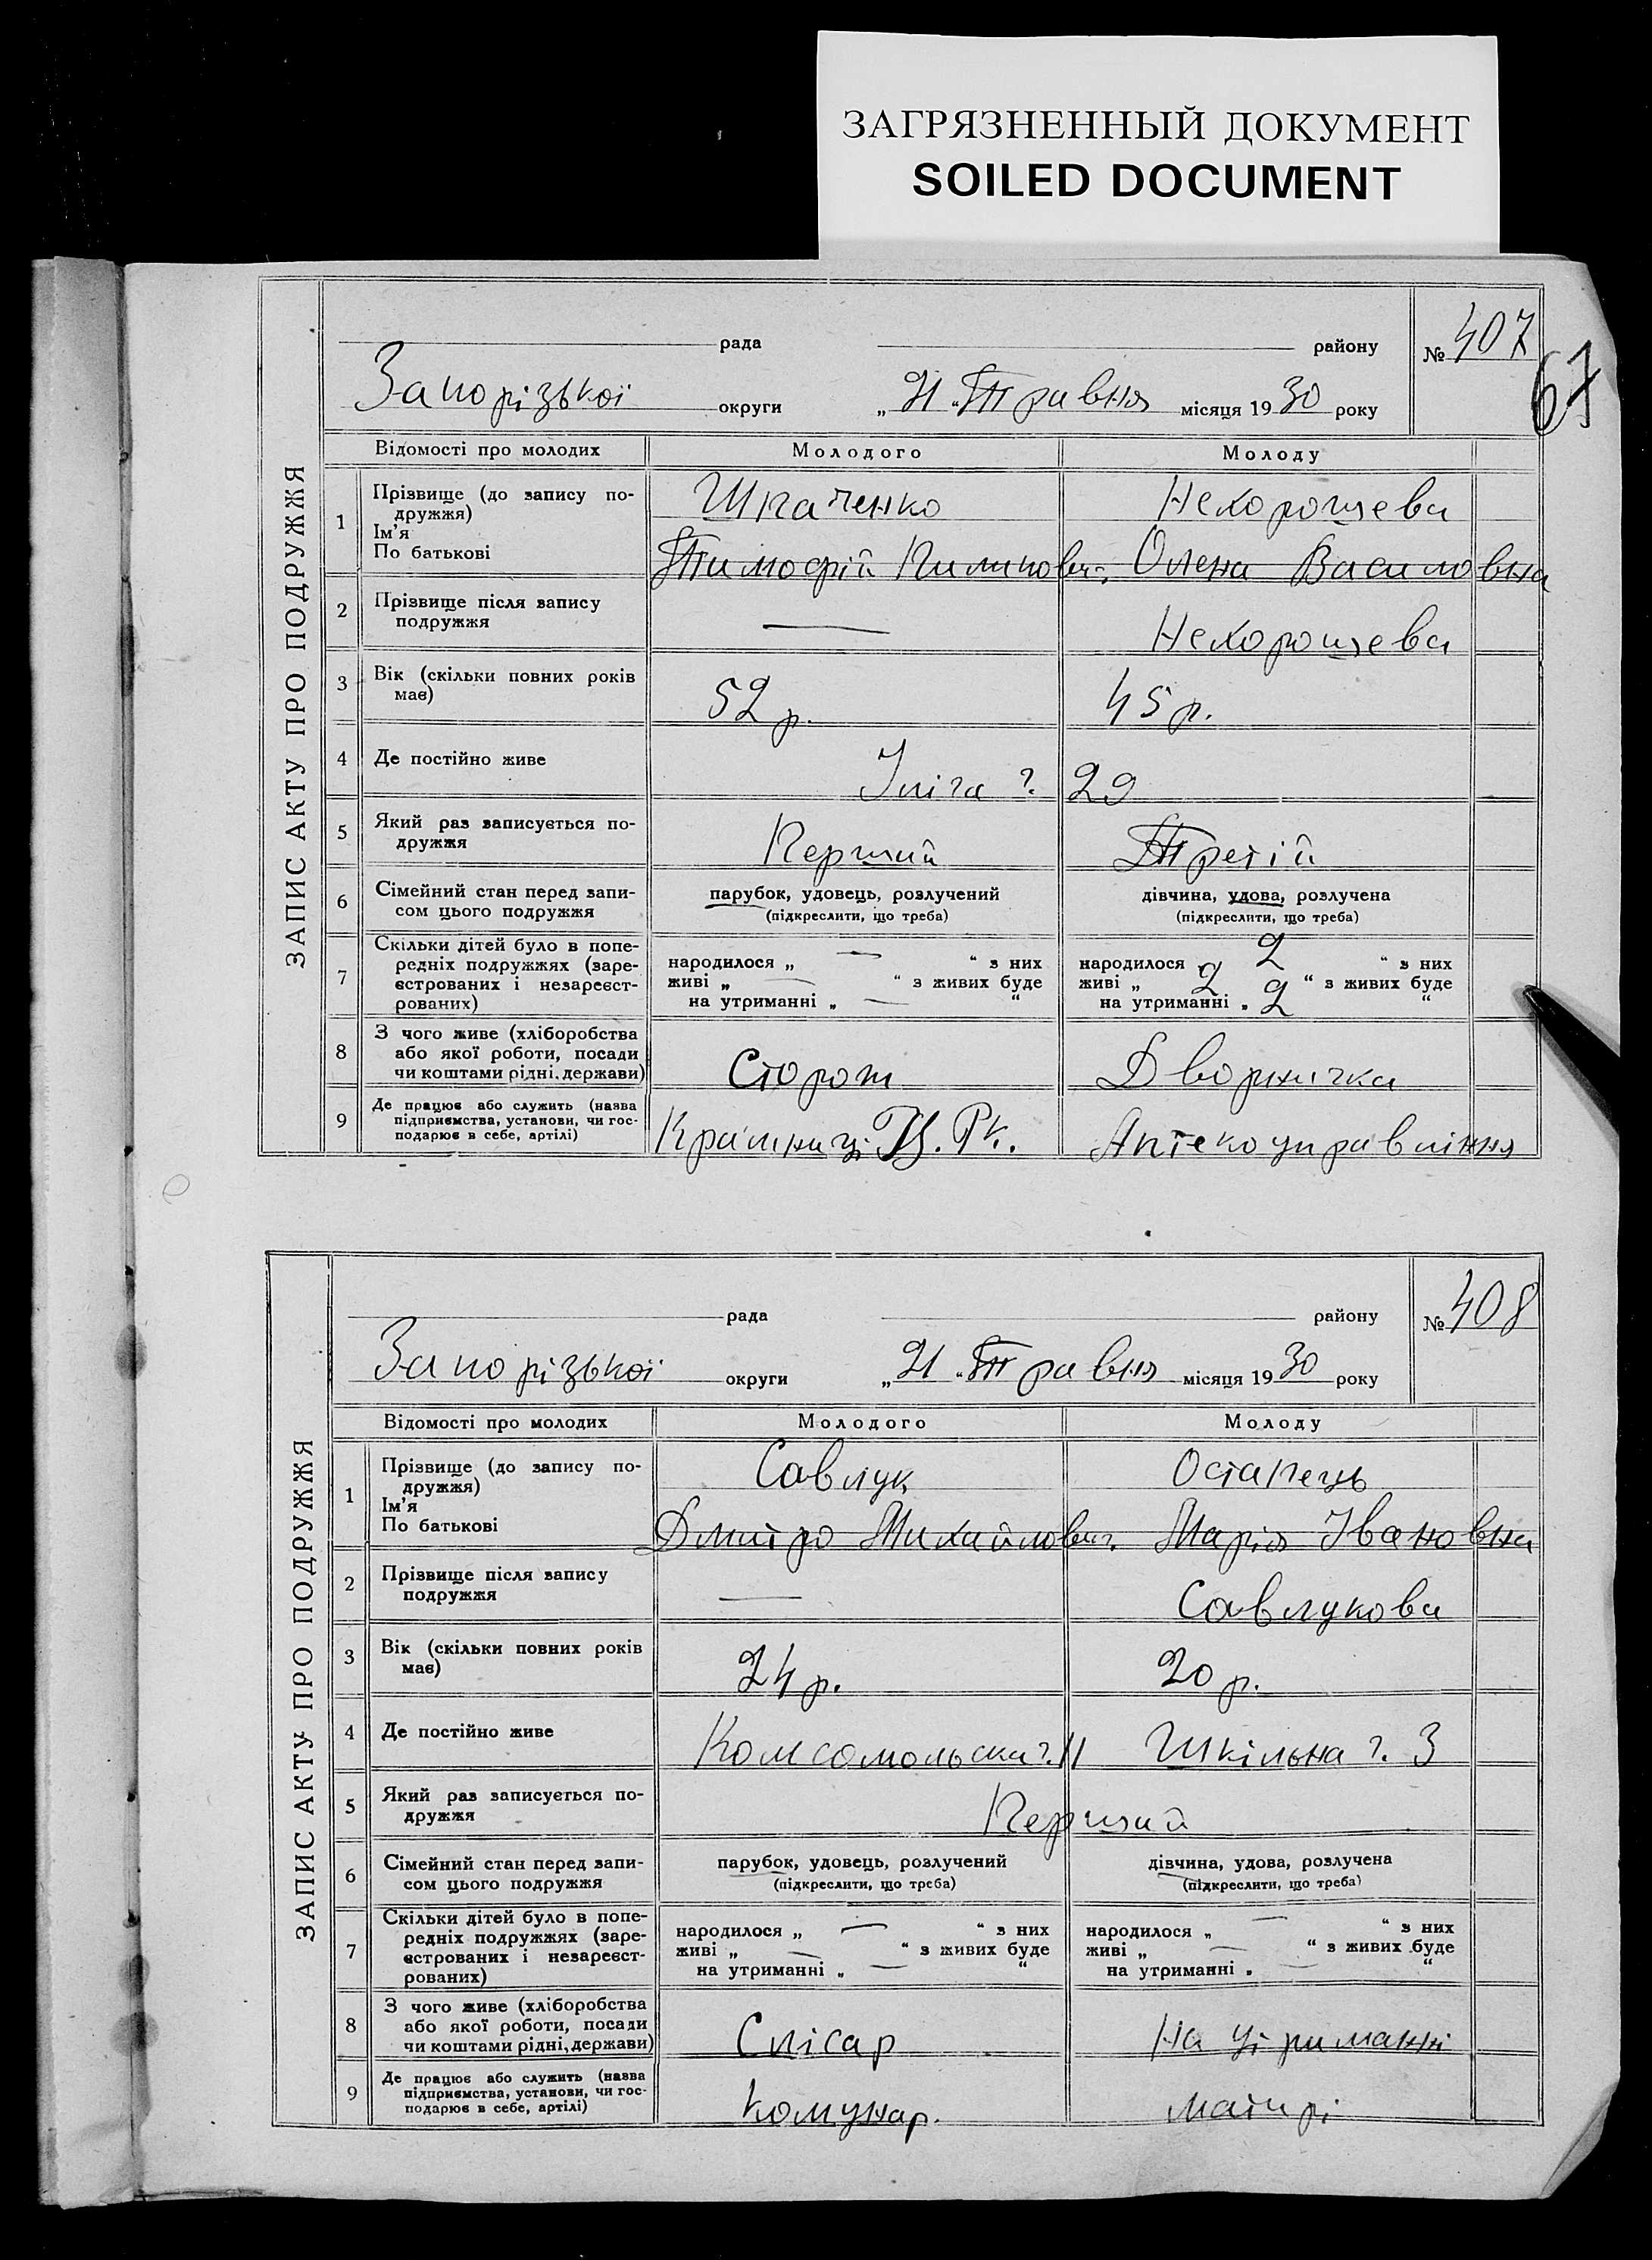 ЗАГРЯЗНЕННЫЙ ДОКУМЕНТ
SOILED DOCUMENT
67
ЗАПИС АКТУ ПРО ПОДРУЖЖЯ
рада району № 407
Запорізької округи „21“ Травня місяця 1930 року
Відомості про молодих Молодого Молоду
1 Прізвище (до запису подружжя) Нехорошева
Ім'я
По батькові Тимофій Пилипович. Олена Василовна
2 Прізвище після запису подружжя — Нехорошева
3 Вік (скільки повних років має) 52 р. 45 р.
4 Де постійно живе Ілліча ч. 29
5 Який раз записується подружжя Перший Третій
6 Сімейний стан перед записом цього подружжя парубок, удовець, розлучений дівчина, удова, розлучена
(підкреслити, що треба) (підкреслити, що треба)
7 Скільки дітей було в попередніх подружжях (зареєстрованих і незареєстрованих)
народилося „ — “ з них народилося „ 2 “ з них
живі „ — “ з живих буде живі „ 2 “ з живих буде
на утриманні „ — “ на утриманні „ 2 “
8 З чого живе (хліборобства або якої роботи, посади чи коштами рідні, держави) Сторож Дворничка
9 Де працює або служить (назва підприємства, установи, чи господарює в себе, артілі) Аптекоуправління
ЗАПИС АКТУ ПРО ПОДРУЖЖЯ
рада району № 408
Запорізької округи „21“ Травня місяця 1930 року
Відомості про молодих Молодого Молоду
1 Прізвище (до запису подружжя) Савлук Остапець
Ім'я
По батькові Дмитро Михайлович. Марія Івановна
2 Прізвище після запису подружжя — Савлукова
3 Вік (скільки повних років має) 24 р. 20 р.
4 Де постійно живе Комсомольска ч. 11 Шкільна ч. 3
5 Який раз записується подружжя Перший
6 Сімейний стан перед записом цього подружжя парубок, удовець, розлучений дівчина, удова, розлучена
(підкреслити, що треба) (підкреслити, що треба)
7 Скільки дітей було в попередніх подружжях (зареєстрованих і незареєстрованих)
народилося „ — “ з них народилося „ — “ з них
живі „ — “ з живих буде живі „ — “ з живих буде
на утриманні „ — “ на утриманні „ — “
8 З чого живе (хліборобства або якої роботи, посади чи коштами рідні, держави) Слісар На утриманні
9 Де працює або служить (назва підприємства, установи, чи господарює в себе, артілі) Комунар. матирі